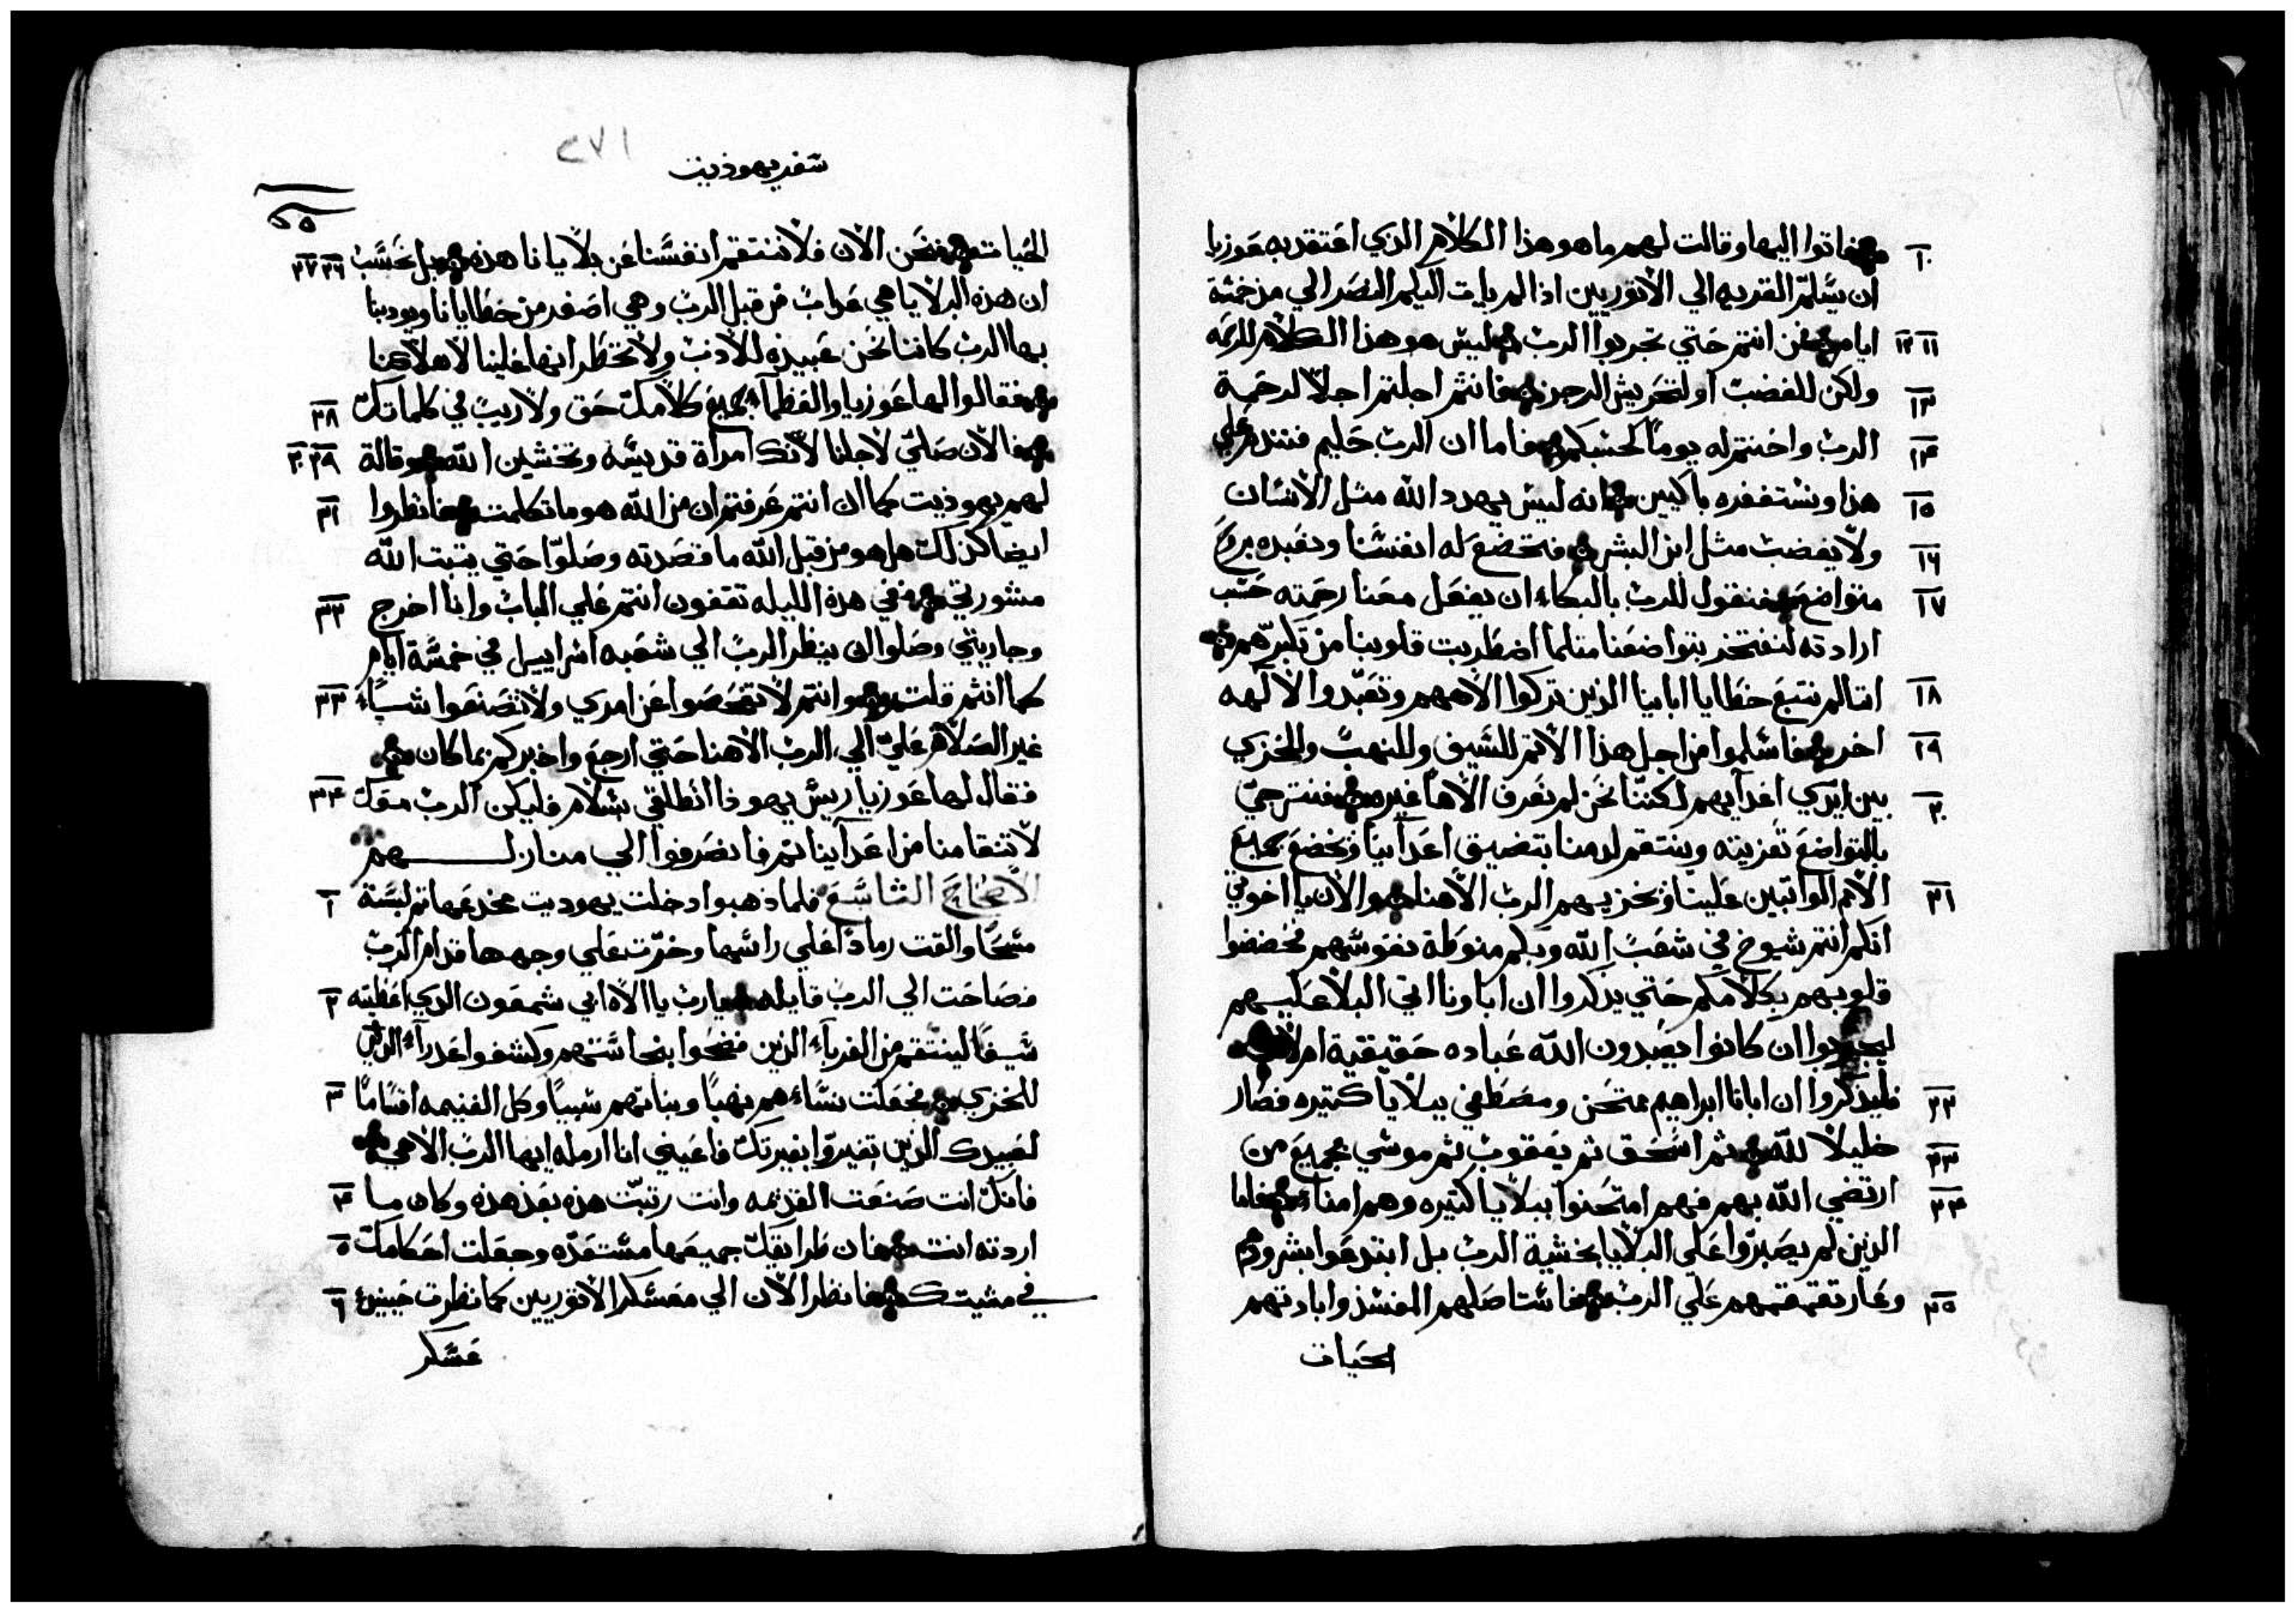 فاتوا اليها وقالت لهم ما هو هذا الكلام الدي اعتقد به عوزيا ١٠
ان يسلم القريه الي الاتوريين اذا لم يات اليكم النصر الي من خمسة
ايام فمن انتم حتي تجربوا الرب ليس هو هذا الكلام للرحمه ١١ ١٢
ولكن للغضب او لتحريش الرجز فانتم اجلتم اجلا لرحمة ١٣
الرب واختم له يوما لحسبكم فاما ان الرب حليم فنندم علي ١٤
هذا ونستغفره باكيين فانه ليس يهدد الله مثل الانسان ١٥
ولا يغضب مثل ابن البشر فتخضع له انفسنا ونعبده بروح ١٦
متواضع فنقول للرب بالبكاء ان يفعل معنا رحمته حسب ١٧
ارادته لنفتخر بتواضعنا مثلما اضطربت قلوبنا من تكبرهم
اننا لم نتبع خطايا ابايا الذين تركوا الاههم وتعبدوا لالهه ١٨
اخر فاسلموا من اجل هذا الاتم للسيف وللنهب وللخزي ١٩
بين ايدي اعدايهم لكننا نحن لم نعرف الاها غيره فنترجي ٢٠
بالتواضع تعزيته وينتقم لدمنا بتضيق اعداينا وتخضع جميع
الامم الواتبين علينا ويخزيهم الرب الاهنا والان يا اخوتي ٢١
انكم انتم شيوخ في شعب الله وبكم منوطة نفوسهم فخضضوا
قلوبهم بكلامكم حتي يدكروا ان اباونا اتي البلا عليهم
ليجربوا ان كانوا يعبدون الله عباده حقيقية ام لا
فليذكروا ان ابانا ابراهيم متحن ومصطفي ببلايا كتيره فصار ٢٢
خليلا لله ثم اسحق ثم يعقوب ثم موسي جميع من ٢٣
ارتضي الله بهم فهم امتحنوا ببلايا كتيره وهم امناء فاما ٢٤
الذين لم يصبروا علي البلايا بخشية الرب بل ابتدعوا بشرورهم
وعار تقمقمهم علي الرب فاستاصلهم المفسد وابادتهم ٢٥
الحيات
٢٧١
سفر يهوذيت
٥٥
الحيات فنحن الان فلا ننتقم انفسنا عن بلايانا هذه بل نحسب ٢٦ ٢٧
ان هذه البلايا هي عداب من قبل الرب وهي اصغر من خطايانا ويودبنا
بها الرب كاننا نحن عبيده للادب ولا نخطر انها علينا لاهلاكنا
فقالوا لها عوزيا والعظماء جميع كلامك حق ولا ريب في كلماتك ٢٨
فالان صلي لاجلنا لانك امراة قديسه وتخشين الله وقالة ٢٩ ٣٠
لهم يهوذيت كما ان انتم عرفتم ان من الله هو ما تكلمت فانظروا ٣١
ايضا كذلك هل هو من قبل الله ما قصدته وصلوا حتي يتبت الله
مشورتي ففي هذه الليله تقفون انتم علي الباب وانا اخرج ٣٢
وجاريتي وصلوا ان ينظر الرب الي شعبه اسراييل في خمسة ايام
كما انتم قلتم وانتم لا تفحصوا عن امري ولا تصنعوا شياء ٣٣
غير الصلاه علي الي الرب الاهنا حتي ارجع واخبركم بما كان
فقال لها عوزيا ريس يهوذا انطلقي بسلام فليكن الرب معك ٣٤
لانتقامنا من اعداينا تم فانصرفوا الي منازلهم
الاصحاح التاسع فلما ذهبوا دخلت يهوديت مخدعها تم لبسة ١
مسحا والقت رمادا علي راسها وخرت علي وجهها قدام الرب
فصاحت الي الرب قايله يا رب يا الاه ابي شمعون الدي اعطيته ٢
سيفا لينتقم من الغرباء الذين فضحوا بنجاستهم وكشفوا عدراء
للخزي فجعلت نساءهم نهبا وبناتهم سبيا وكل الغنيمه اقساما ٣
لعبيدك الذين تغيروا بغيرتك فاعيني انا ارمله ايها الرب الاهي
فانك انت صنعت القديمه وانت رتبت هذه بعد هذه وكان ما ٤
اردته انت فان طرايقك جميعها مستعده وجعلت احكامك ٥
في مشيتك فانظر الان الي معسكر الاتوريين كما نظرت حينئذ ٦
عسكر